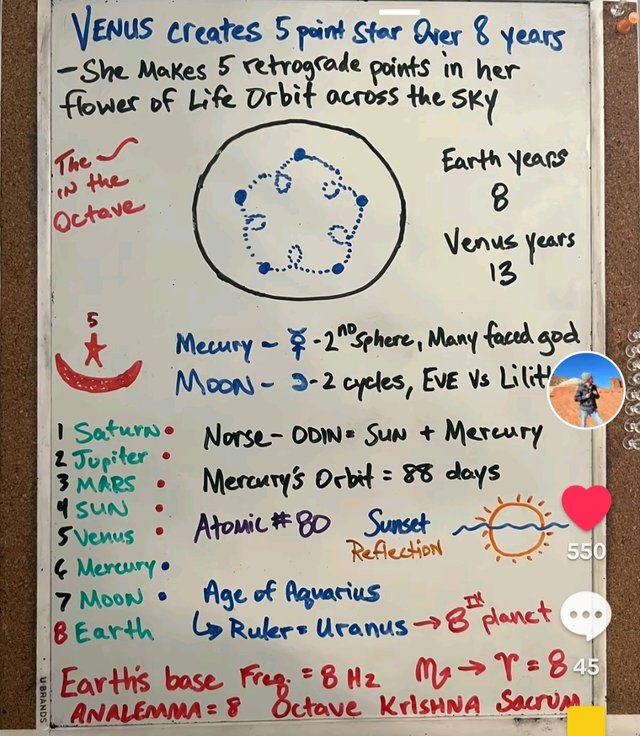 VENUS creates 5 point Star Over 8 years
- She Makes 5 retrograde points in her
flower of Life Orbit across the Sky
The
in the
Octave
Earth years
8
Venus years
13
5
Mecury - ☿ - 2nd Sphere, Many faced god
Moon - ☽ - 2 cycles, Eve Vs Lilith
1 Saturn
2 Jupiter
3 MARS
4 SUN
5 Venus
6 Mercury
7 Moon
8 Earth
Norse - ODIN = Sun + Mercury
Mercury's Orbit = 88 days
Atomic # 80
Sunset
Reflection
Age of Aquarius
↳ Ruler = Uranus → 8th planet
Earth's base Freq. = 8 Hz
♏ → ♈ = 8
ANALEMMA = 8 Octave Krishna Sacrum
UBRANDS
550
45